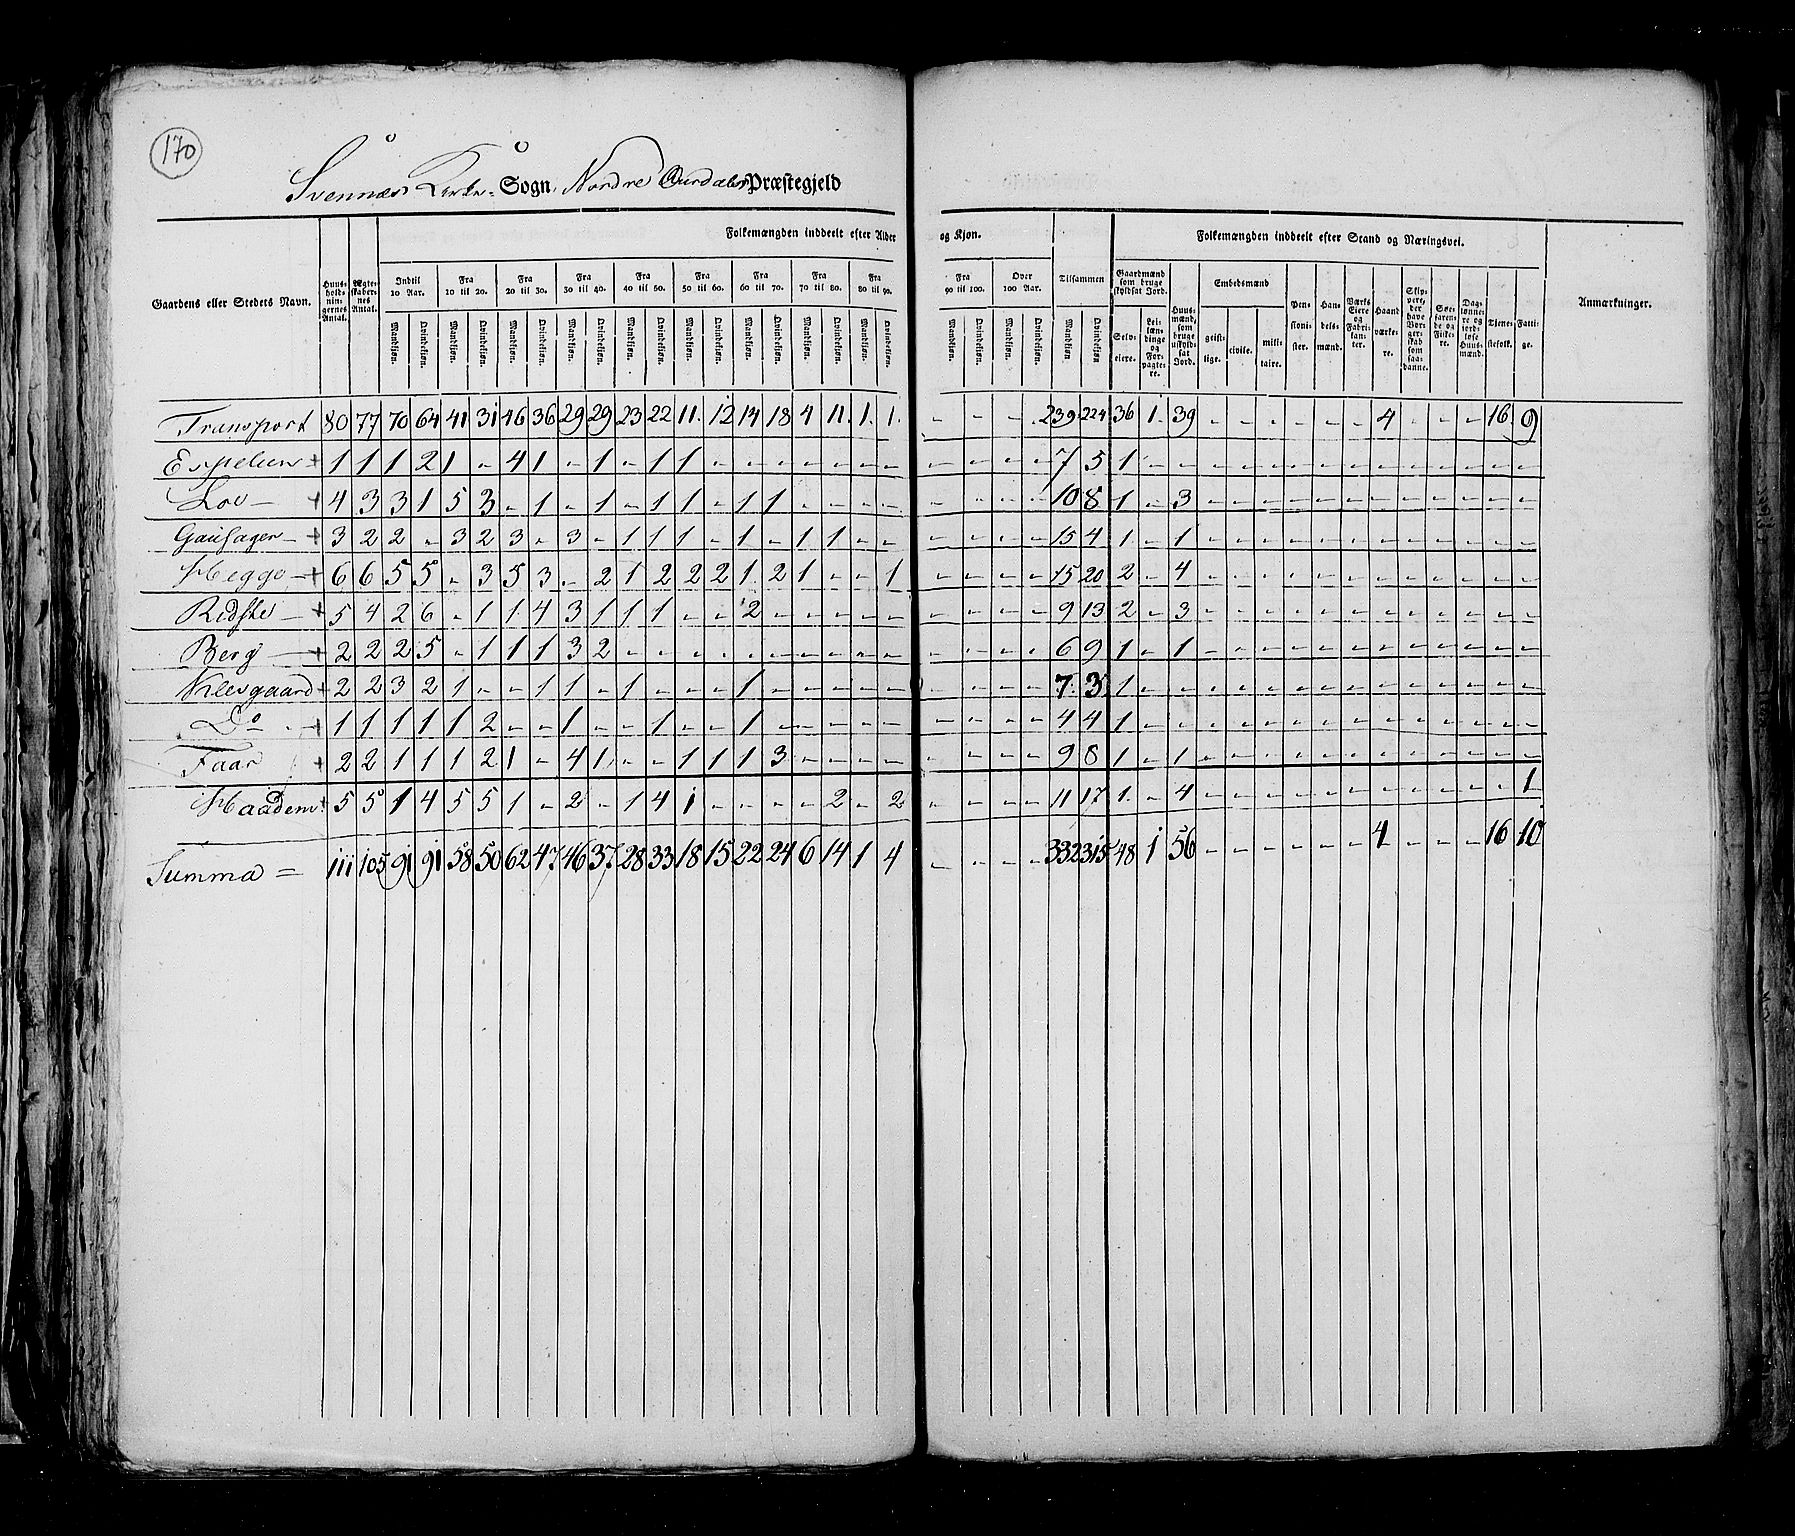 170
Svennæs Kirke- Sogn, Nordre Ourdahls Præstegjeld
Folkemængden inddeelt efter Alder og Kjøn. Folkemængden inddeelt efter Stand og Næringsvei.
Gaardens eller Stedets Navn. Huusholdningernes Antal. Ægteskabernes Antal. Indtil 10 Aar. Fra 10 til 20. Fra 20 til 30. Fra 30 til 40. Fra 40 til 50. Fra 50 til 60. Fra 60 til 70. Fra 70 til 80. Fra 80 til 90. Fra 90 til 100. Over 100 Aar. Tilsammen Gaardmænd som bruge skyldsat Jord. Huusmænd, som bruge uskyldsat Jord. Embedsmænd Pensionister. Handelsmænd. Værks Eiere og Fabrikanter. Haandværkere. Skippere, der have Borgerskab som saadanne. Søefarende og Fiskere. Daglønnere og jordløse Huusmænd. Tjenestefolk. Fattige. Anmærkninger.
Mandkjøn. Qvindekjøn. Mandkjøn. Qvindekjøn. Mandkjøn. Qvindekjøn. Mandkjøn. Qvindekjøn. Mandkjøn. Qvindekjøn. Mandkjøn. Qvindekjøn. Mandkjøn. Qvindekjøn. Mandkjøn. Qvindekjøn. Mandkjøn. Qvindekjøn. Mandkjøn. Qvindekjøn. Mandkjøn. Qvindekjøn. Mandkjøn Qvindekjøn Selveiere. Leilændinge og Forpagtere. geistlige. civile. militaire.
Transport 80 77 70 64 41 31 46 36 29 29 23 22 11. 12 14 18 4 11. 1. 1. - - - - 239. 224 36 1. 39 - - - - - - 4 - - - 16. 9
Espelien + 1 1 1 2 1 - 4 1 - 1 - 1 1 - - - - - - - - - - - 7 5 1 - - - - - - - - - - - - - -
Lov - + 4 3 3 1 5 3 - 1 - 1 - 1 1 - 1 1 - - - - - - - - 10 8 1 - 3 - - - - - - - - - - - -
Gausager - + 3 2 2 - 3 2 3 - 3 - 1 1 1 - 1 - 1 1 - - - - - - 15 4 1 - 1 - - - - - - - - - - - -
Hegge - + 6 6 5 5 - 3 5 3 - 2 1 2 2 2 1. 2 1 - - 1 - - - - 15 20 2 - 4 - - - - - - - - - - - -
Ridste - + 5 4 2 6 - 1 1 4 3 1 1 1 - - 2 - - - - - - - - - 9 13 2 - 3 - - - - - - - - - - - -
Berg - + 2 2 2 5 - 1 1 1 3 2 - - - - - - - - - - - - - - 6 9 1 - 1 - - - - - - - - - - - -
Klevgaard + 2 2 3 2 1 - - 1 1 - 1 - - - 1 - - - - - - - - - 7. 3 1 - - - - - - - - - - - - - -
Do - + 1 1 1 1 1 2 - - 1 - - 1 - - 1 - - - - - - - - - 4 4 1 - - - - - - - - - - - - - -
Faar + 2 2 1 1 1 2 1 - 4 1 - - 1 1 1 3 - - - - - - - - 9 8 1 - 1 - - - - - - - - - - - -
Haadem + 5 5 1 4 5 5 1 - 2 - 1 4 1 - - - - 2 - 2 - - - - 11 17 1. - 4 - - - - - - - - - - - 1
Summa = 111 105 91 91 58 50 62 47 46 37 28 33 18 15 22 24 6 14 1 4 - - - - 332 315 48 1 56 - - - - - - 4 - - - 16 10